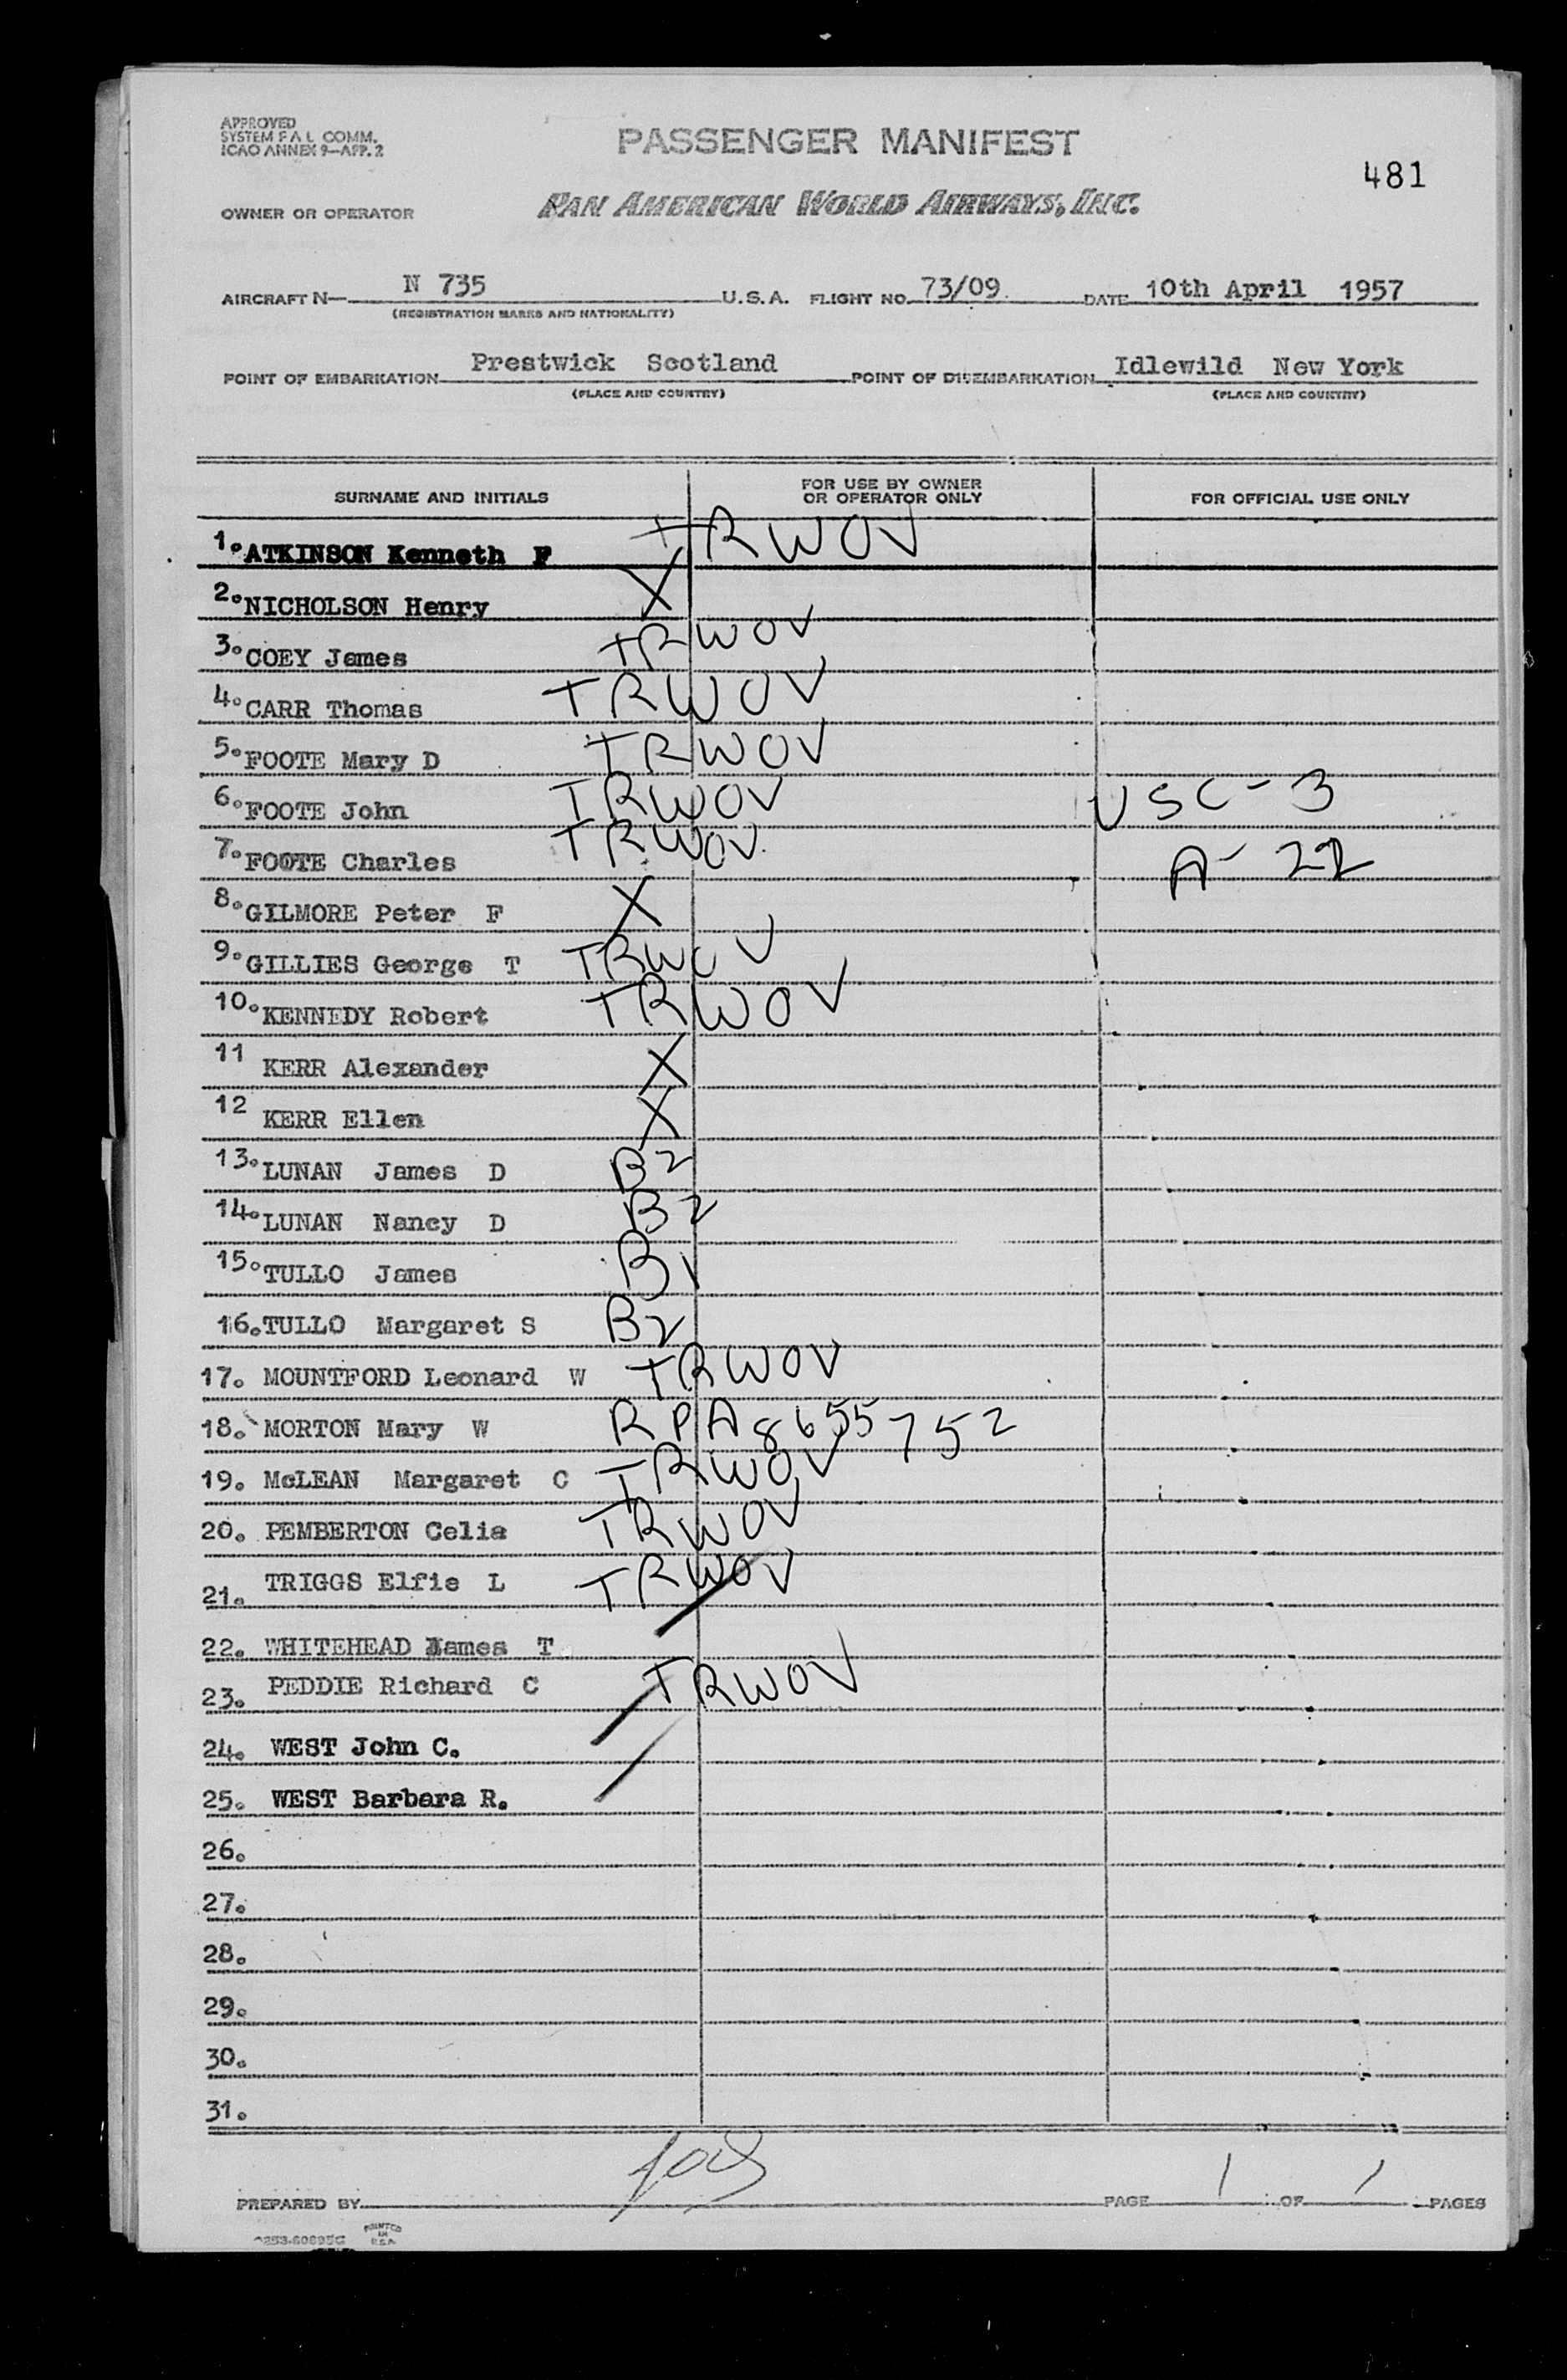 APPROVED
SYSTEM F A L COMM.
ICAO ANNEX 9—APP. 2
PASSENGER MANIFEST
481
OWNER OR OPERATOR PAN AMERICAN WORLD AIRWAYS, INC.
AIRCRAFT N— N 735 U.S.A. FLIGHT NO. 73/09. DATE 10th April 1957
(REGISTRATION MARKS AND NATIONALITY)
POINT OF EMBARKATION Prestwick Scotland POINT OF DISEMBARKATION Idlewild New York
(PLACE AND COUNTRY) (PLACE AND COUNTRY)
SURNAME AND INITIALS FOR USE BY OWNER OR OPERATOR ONLY FOR OFFICIAL USE ONLY
1. ATKINSON Kenneth F TRWOV
2. NICHOLSON Henry X
3. COEY James TRWOV
4. CARR Thomas TRWOV
5. FOOTE Mary D TRWOV
6. FOOTE John TRWOV USC-3
7. FOOTE Charles TRWOV A-22
8. GILMORE Peter F X
9. GILLIES George T TRWOV
10. KENNEDY Robert TRWOV
11 KERR Alexander X
12 KERR Ellen X
13. LUNAN James D B2
14. LUNAN Nancy D B2
15. TULLO James B1
16. TULLO Margaret S B2
17. MOUNTFORD Leonard W TRWOV
18. MORTON Mary W RPA 8655752
19. McLEAN Margaret C TRWOV
20. PEMBERTON Celia TRWOV
21. TRIGGS Elfie L TRWOV
22. WHITEHEAD James T
23. PEDDIE Richard C TRWOV
24. WEST John C.
25. WEST Barbara R.
26.
27.
28.
29.
30.
31.
PREPARED BY PAGE 1 OF 1 PAGES
PRINTED
IN
U.S.A.